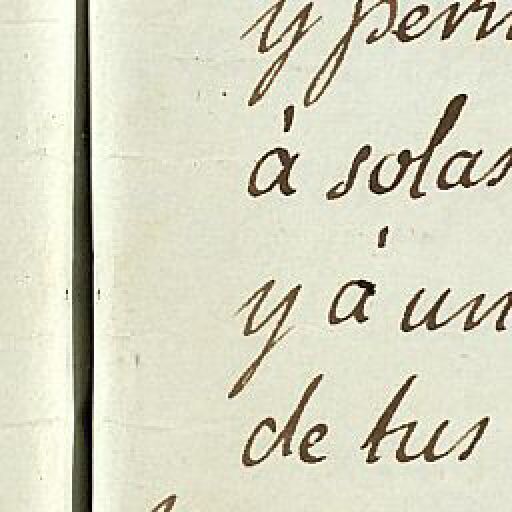 y perm
á solas
y á un
de tus